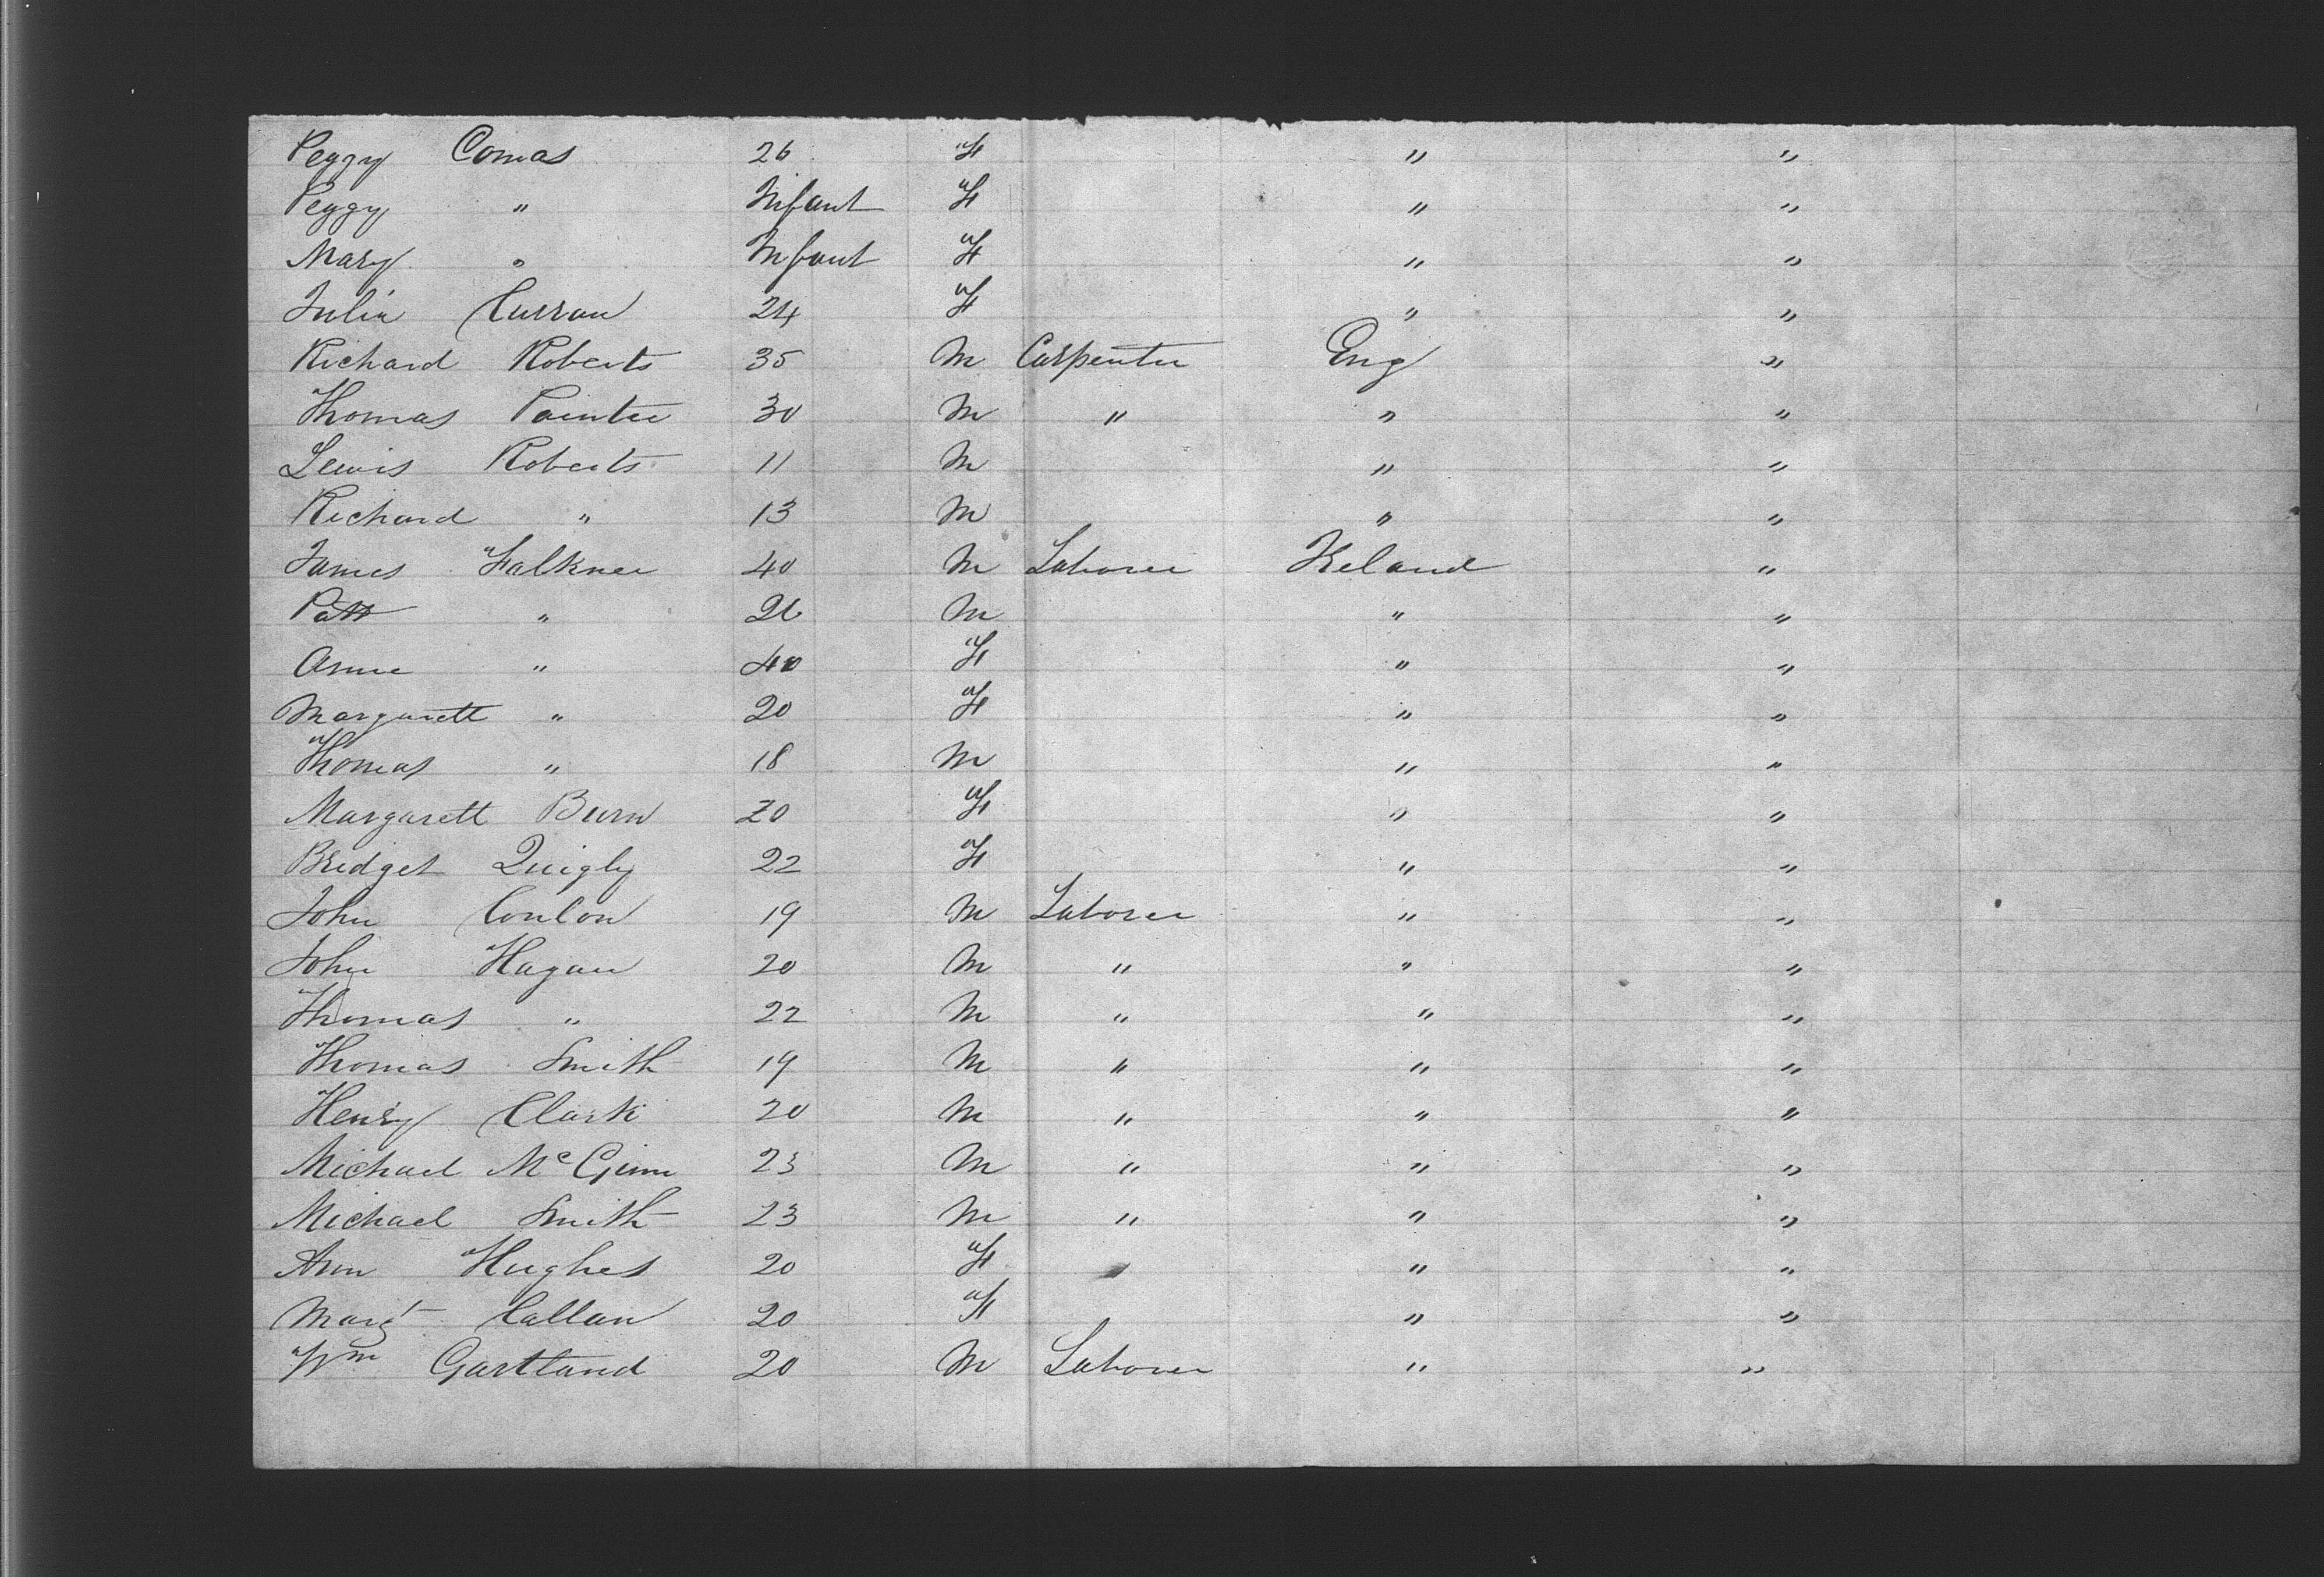 Peggy Comas 26 F " "
Peggy " Infant F " "
Mary " Infant F " "
Julia Curran 24 F " "
Richard Roberts 35 M Carpenter Eng "
Thomas Painter 30 M " " "
Lewis Roberts 11 M " "
Richard " 13 M " "
James Falkner 40 M Laborer Ireland "
Patt " 26 M " "
Anne " 40 F " "
Margarett " 20 F " "
Thomas " 18 M " "
Margarett Burn 20 F " "
Bridget Quigly 22 F " "
John Conlon 19 M Laborer " "
John Hagan 20 M " " "
Thomas " 22 M " " "
Thomas Smith 19 M " " "
Henry Clark 20 M " " "
Michael McGinn 23 M " " "
Michael Smith 23 M " " "
Ann Hughes 20 F " "
Margt Callan 20 F " "
Wm Gartland 20 M Laborer " "